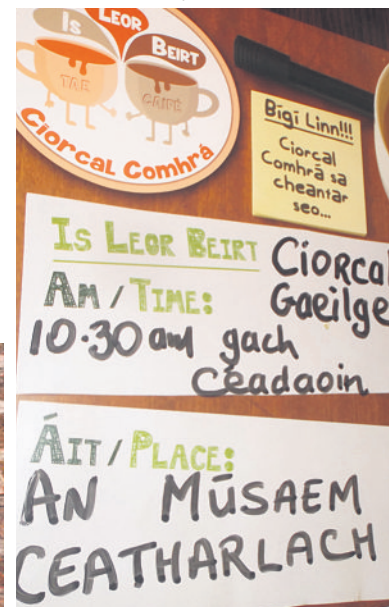 Is Leor Beirt
TAE
CAIFÉ
Ciorcal Comhrá
Bígí Linn!!!
Ciorcal
Comhrá sa
cheantar
seo...
IS LEOR BEIRT
Ciorcal
Gaeilge
AM / TIME:
10.30 am gach
Céadaoin
ÁIT / PLACE:
AN MÚSAEM
CEATHARLACH